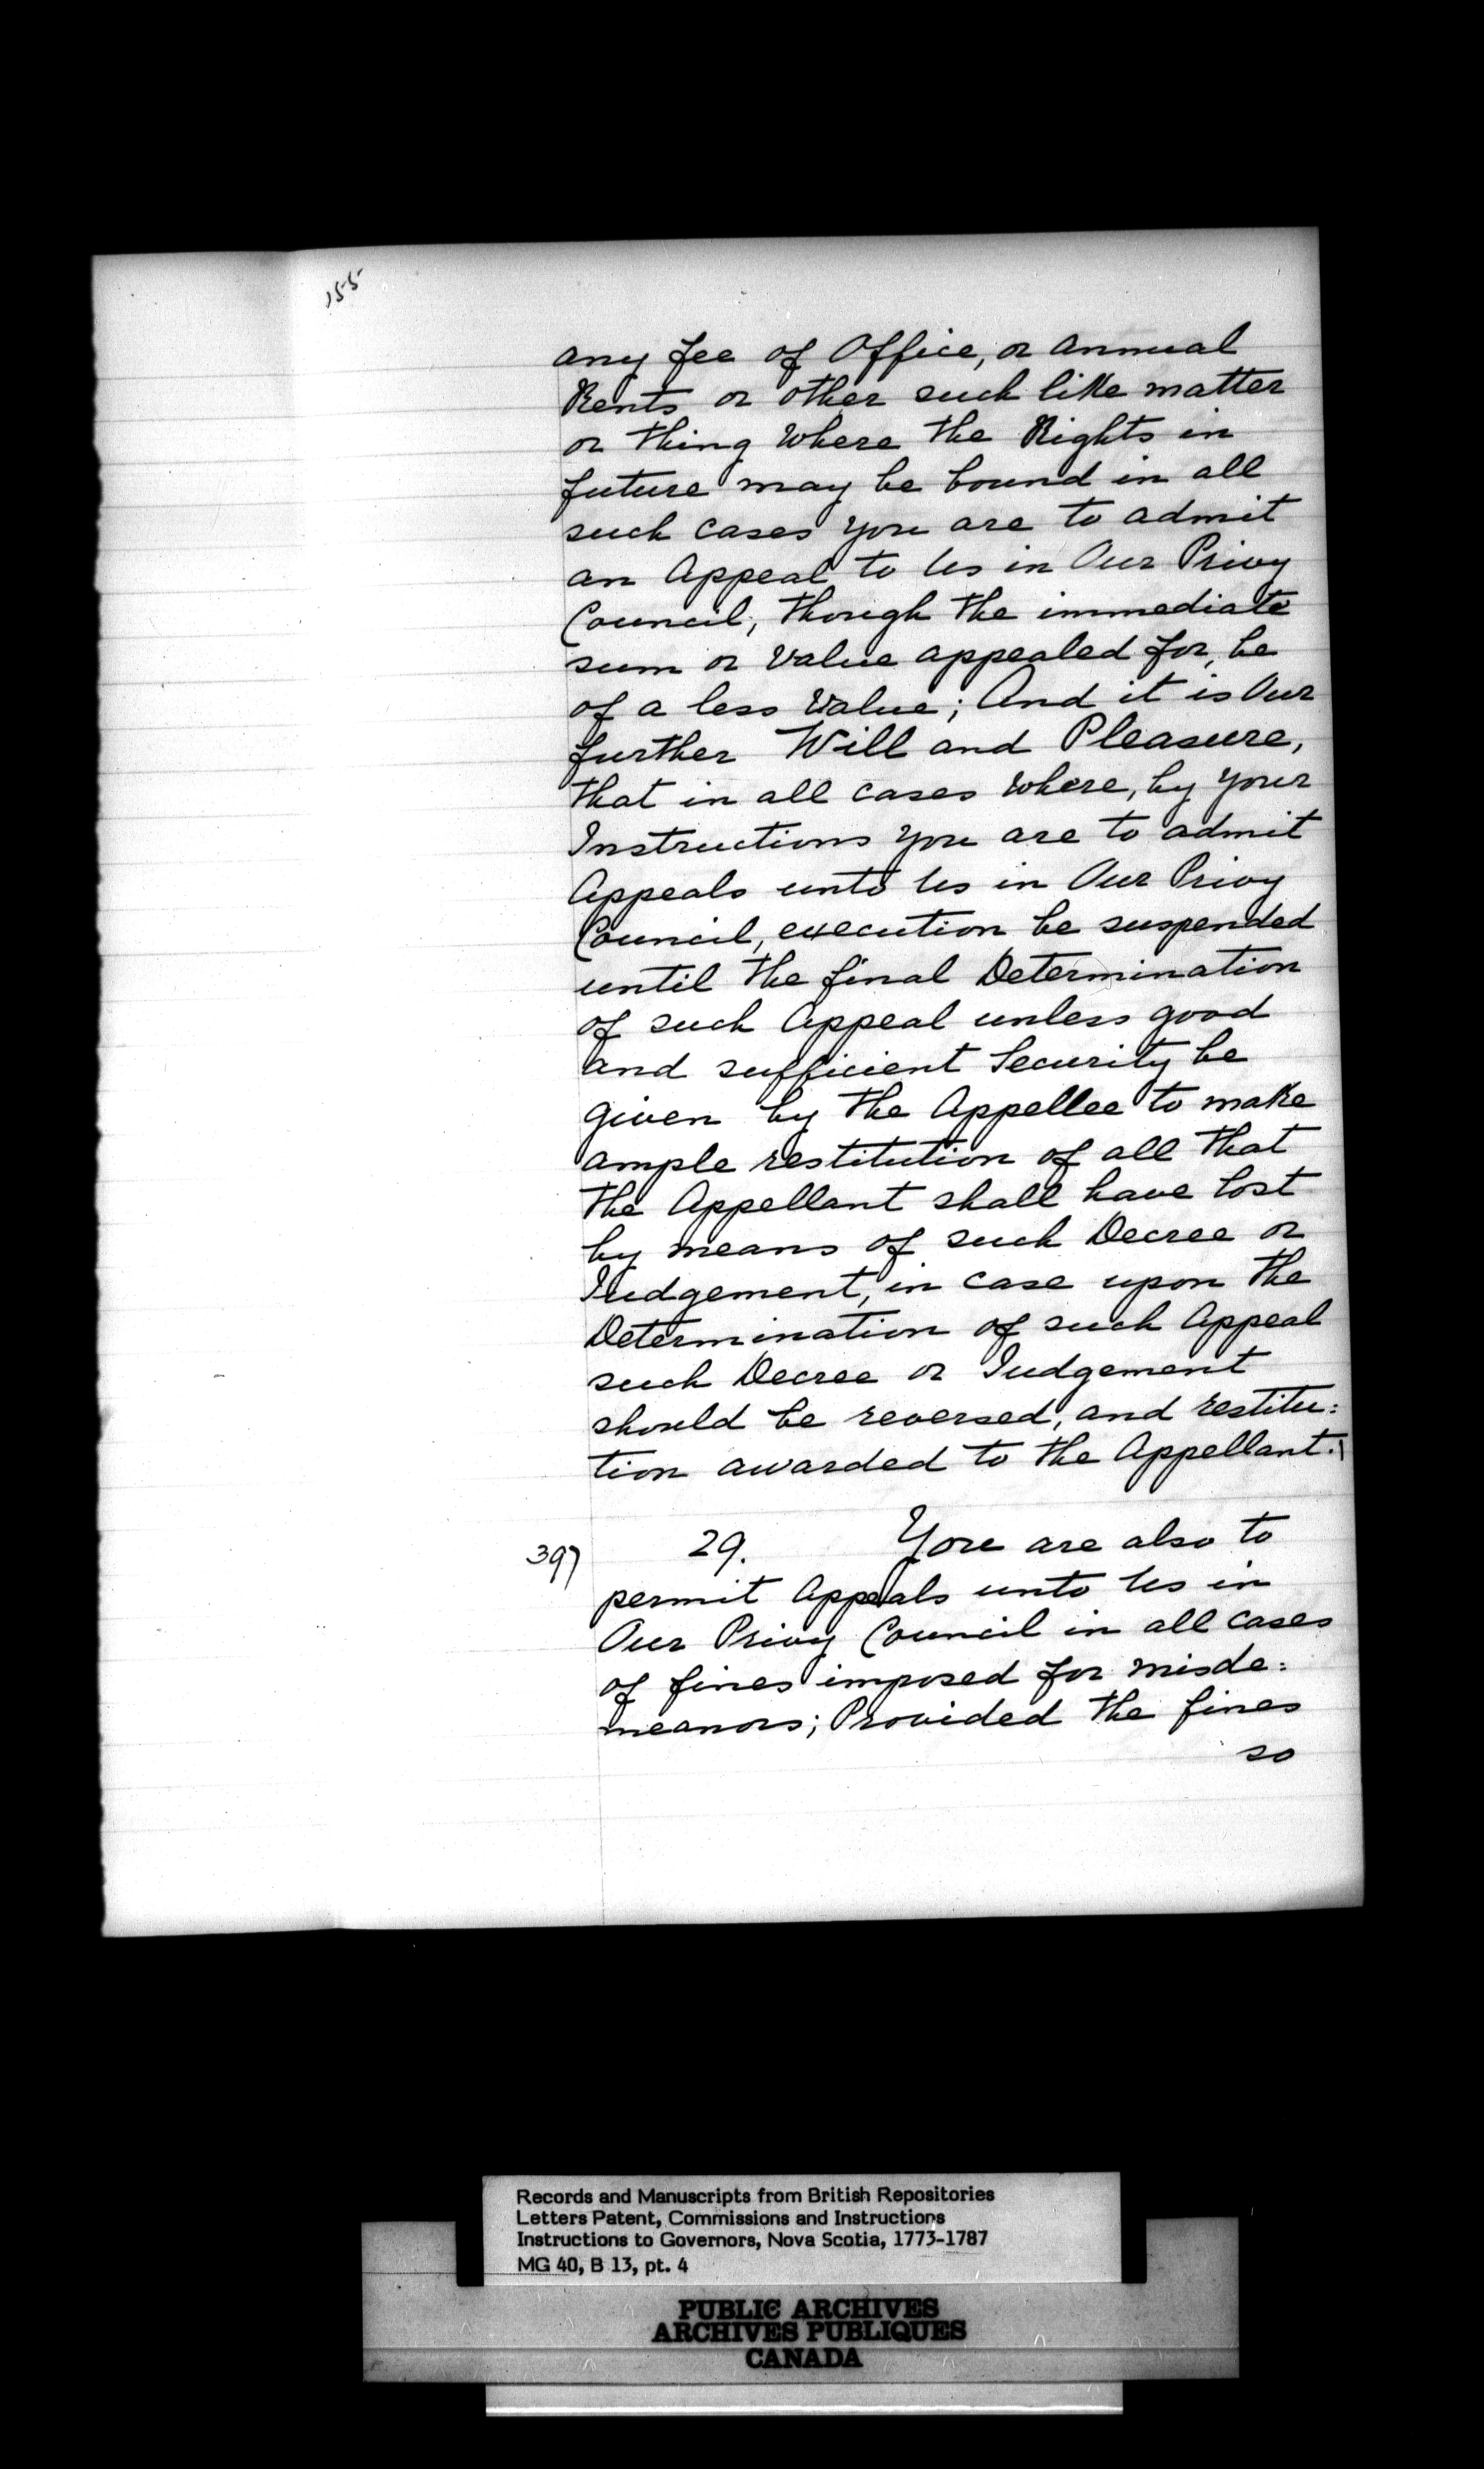 155
any fee of Office, or Annual
Rents or other such like matter
or thing where the Rights in
future may be bound in all
such cases you are to admit
an Appeal to Us in Our Privy
Council, though the immediate
sum or value appealed for, be
of a less Value; And it is Our
further Will and Pleasure,
that in all cases where, by your
Instructions you are to admit
Appeals unto Us in Our Privy
Council, execution be suspended
until the final Determination
of such Appeal unless good
and sufficient Security be
given by the Appellee to make
ample restitution of all that
the Appellant shall have lost
by means of such Decree or
Judgement, in case upon the
Determination of such Appeal
such Decree or Judgement
should be reversed, and restitu:
tion awarded to the Appellant.
397 29. You are also to
permit Appeals unto Us in
Our Privy Council in all cases
of fines imposed for misde:
meanors; Provided the fines
so
Records and Manuscripts from British Repositories
Letters Patent, Commissions and Instructions
Instructions to Governors, Nova Scotia, 1773-1787
MG 40, B 13, pt. 4
PUBLIC ARCHIVES
ARCHIVES PUBLIQUES
CANADA